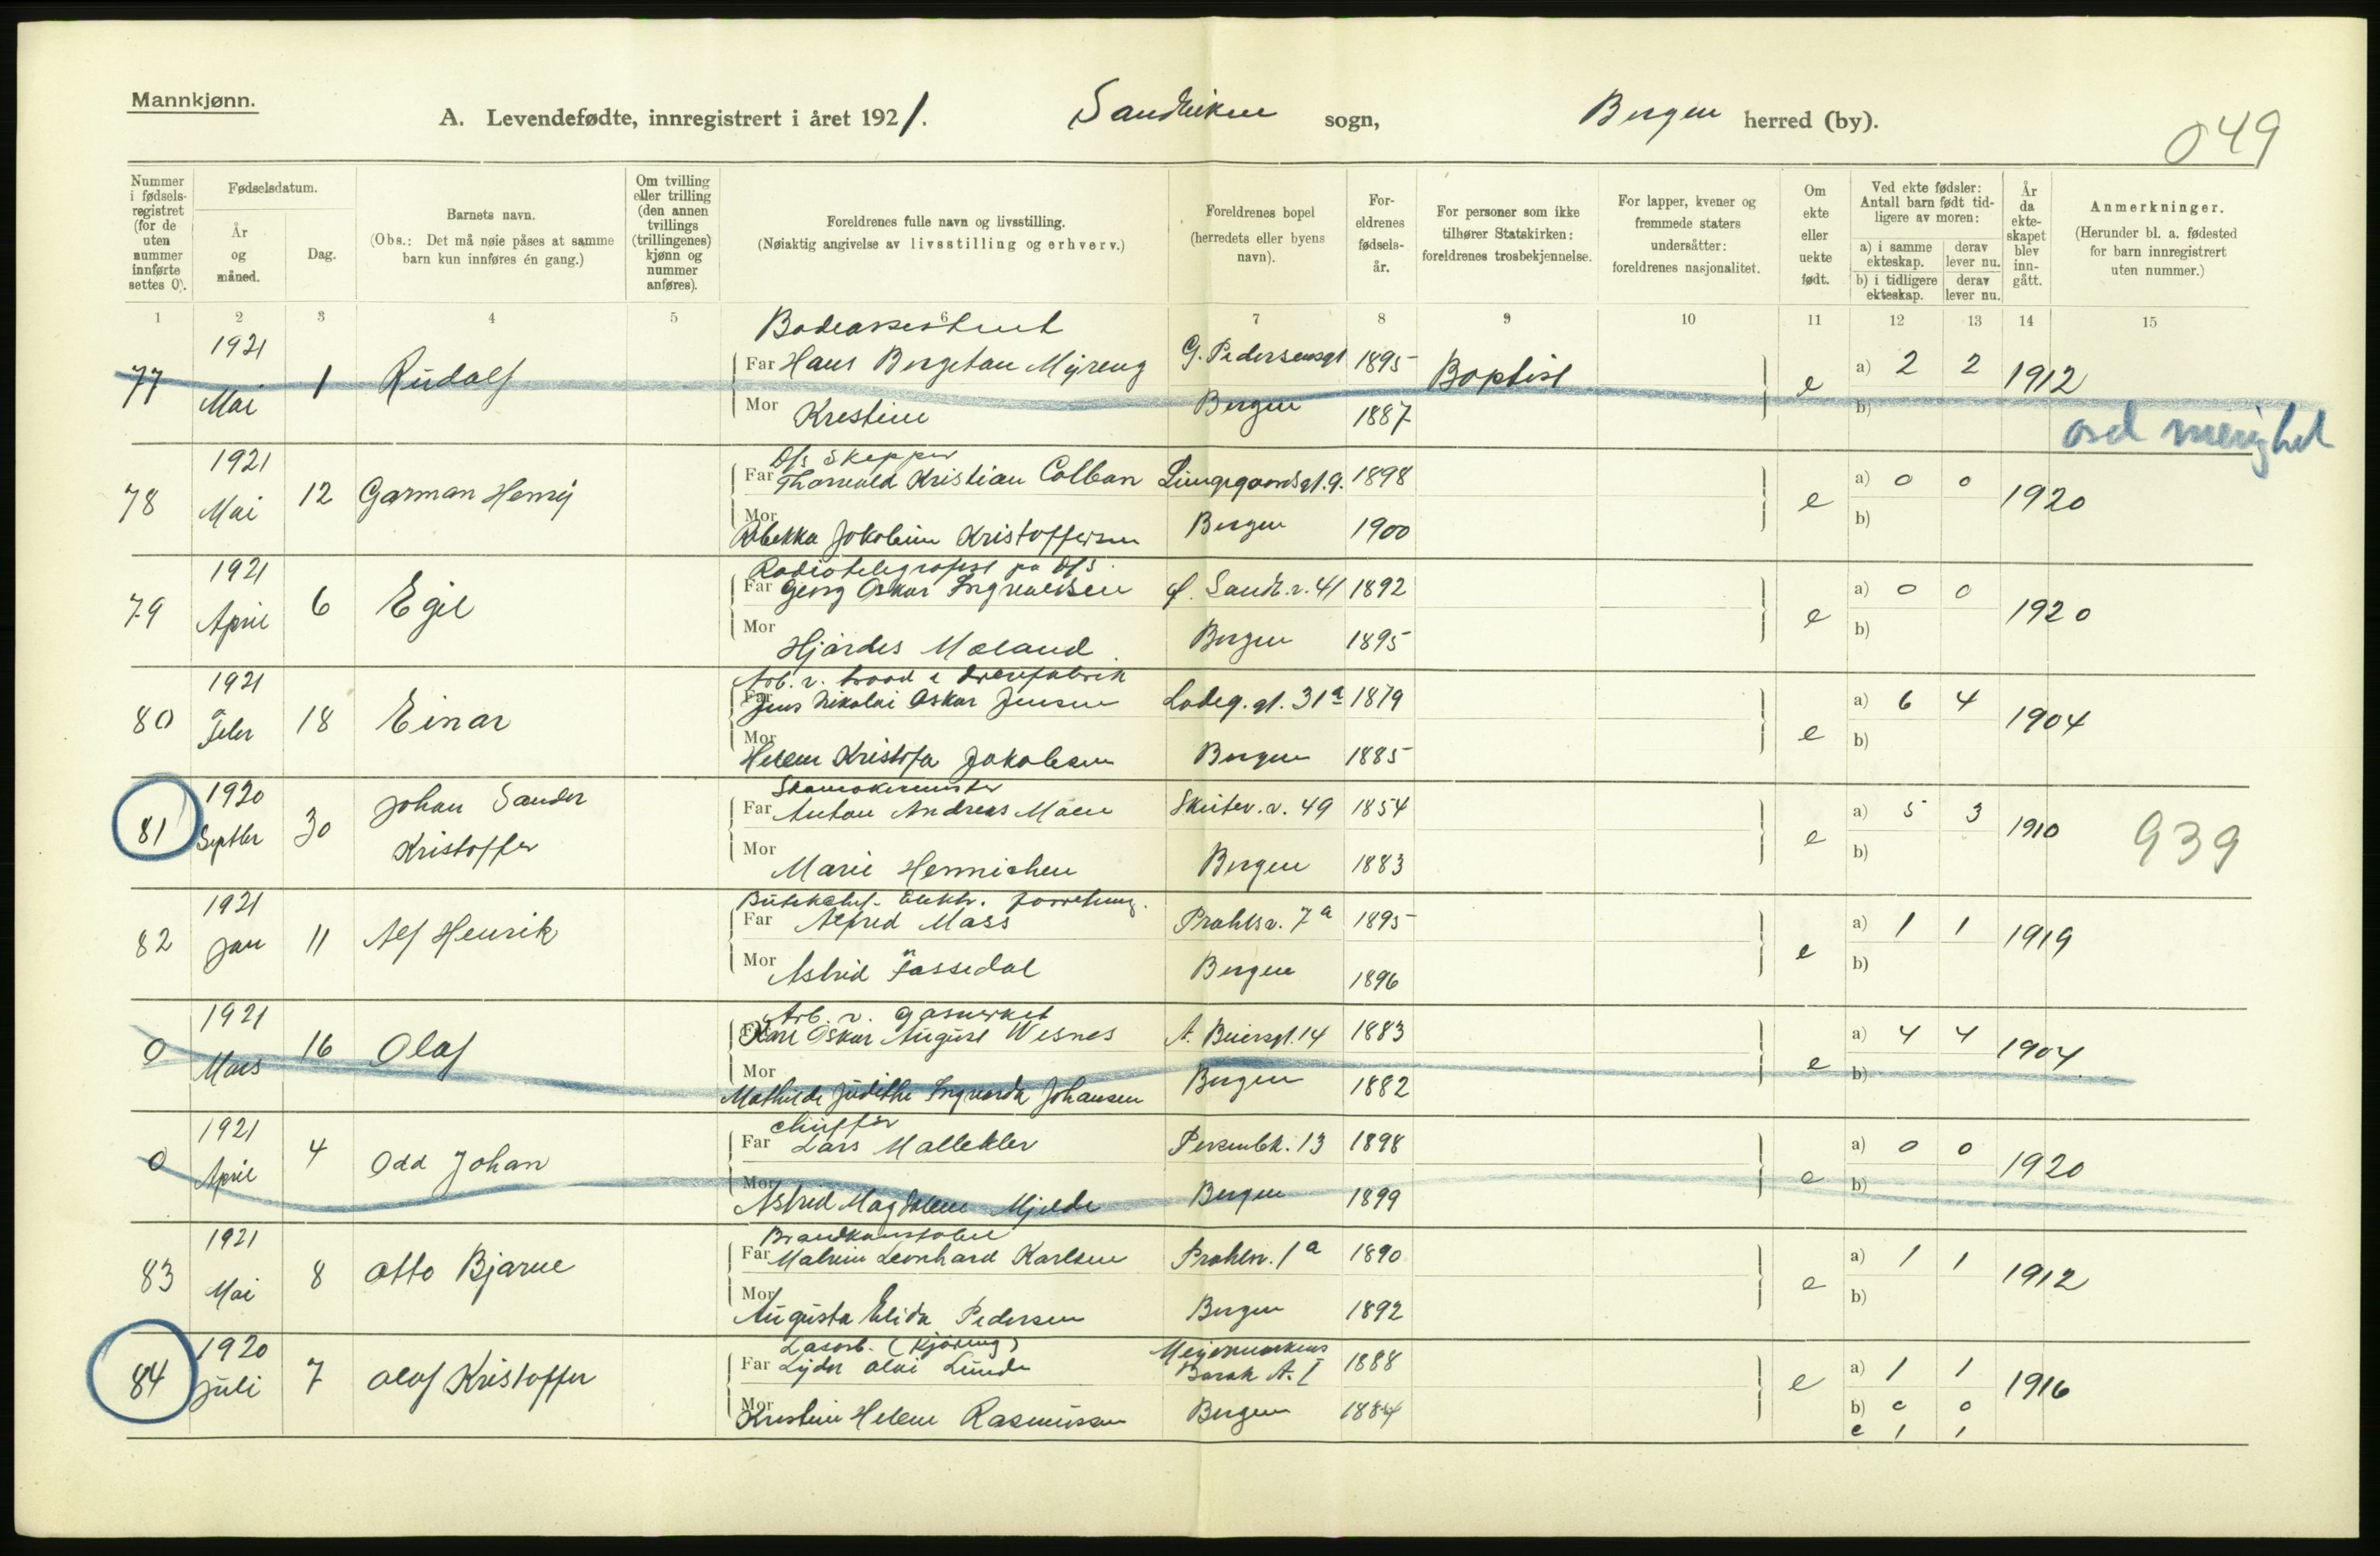 Mannkjønn.
A. Levendefødte, innregistrert i året 1921. Sandviken sogn, Bergen herred (by).
049
Nummer i fødselsregistret (for de uten nummer innførte settes 0).
Fødselsdatum.
År og måned.
Dag.
Barnets navn.
(Obs.: Det må nøie påses at samme barn kun innføres én gang.)
Om tvilling eller trilling (den annen tvillings (trillingenes) kjønn og nummer anføres).
Foreldrenes fulle navn og livsstilling.
(Nøiaktig angivelse av livsstilling og erhverv.)
Foreldrenes bopel (herredets eller byens navn).
Foreldrenes fødselsår.
For personer som ikke tilhører Statskirken: foreldrenes trosbekjennelse.
For lapper, kvener og fremmede staters undersåtter: foreldrenes nasjonalitet.
Om ekte eller uekte født.
Ved ekte fødsler: Antall barn født tidligere av moren:
a) i samme ekteskap. derav lever nu.
b) i tidligere ekteskap. derav lever nu.
År da ekteskapet blev inngått.
Anmerkninger.
(Herunder bl. a. fødested for barn innregistrert uten nummer.)
1 2 3 4 5 6 7 8 9 10 11 12 13 14 15
1921 Badeassistent
77 Mai 1 Rudolf Far Hans Bergetan Myreng G. Pedersensgt 1895 Baptist e a) 2 2 1912
Mor Kristine Bergen 1887 b)
1921 D/s Skipper
78 Mai 12 Garman Henry Far Thorvald Kristian Colban Lungegaardsgt. 9. 1898 e a) 0 0 1920
Mor Rebekka Jakobine Kristoffersen Bergen 1900 b)
1921 Radiotelegrafist på D/S
79 April 6 Egil Far Georg Oskar Ingvaldsen Sandv. v. 41 1892 e a) 0 0 1920
Mor Hjørdis Moland Bergen 1895 b)
1921
80 Febr 18 Einar Far Jens Nikolai Oskar Jensen Ladeg. gt. 31a 1879 e a) 6 4 1904
Mor Helene Kristofa Jakobsen Bergen 1885 b)
1920 Skomakermester
81 Septbr 30 Johan Sander Kristoffer Far Anton Andreas Moen Skutev. v. 49 1854 e a) 5 3 1910 939
Mor Marie Hennichen Bergen 1883 b)
1921 Elektr. forretning.
82 Jan 11 Alf Henrik Far Alfred Mass Prahlsv. 7a 1895 e a) 1 1 1919
Mor Astrid Fassedal Bergen 1896 b)
1921 Arb. v. gasverket
0 Mars 16 Olaf Far Karl Oskar August Wisnes A. Beiersgt. 14 1883 e a) 4 4 1904
Mor Mathilde Judithe Ingvarda Johansen Bergen 1882 b)
1921 Chuffør
0 April 4 Odd Johan Far Lars Mallekler Persenbk. 13 1898 e a) 0 0 1920
Mor Astrid Magdalene Mjelde Bergen 1899 b)
1921 Brandkonstabel
83 Mai 8 Otto Bjarne Far Malvin Leonhard Karlsen Prahlsv. 1a 1890 e a) 1 1 1912
Mor Augusta Elida Pedersen Bergen 1892 b)
1920 Løsarb. (kjøring)
84 Juli 7 Olaf Kristoffer Far Lyder Olai Lunde Meyermarkens Barak A. I 1888 e a) 1 1 1916
Mor Kristine Helene Rasmussen Bergen 1884 b) 0 0
e 1 1